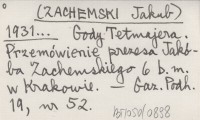 (ZACHEMSKI Jakub)
1931... Gody Tetmajera.
Przemówienie prezesa Jakó-
ba Zachemskiego 6 b.m.
w Krakowie. — Gaz. Podh.
19, nr 52.